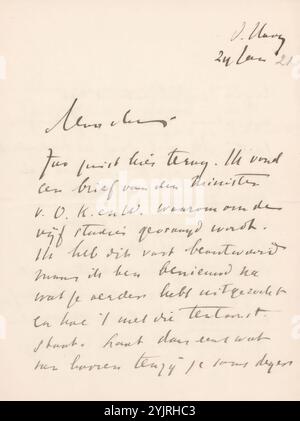 d. Haag
24 Jan 21
Juo juist hier terug. Ik vond
een brief van den Minister
v. O. K. en W. waarom om de
vijf studies gevraagd wordt.
Ik heb dit vast beantwoord
maar ik ben benieuwd na
wat je verders hebt uitgezocht
en hoe 't met die tentoonst.
staat. Laat dan eens wat
van hooren tenzij je soms dezer
alamy
Image ID: 2YJRHC3
www.alamy.com